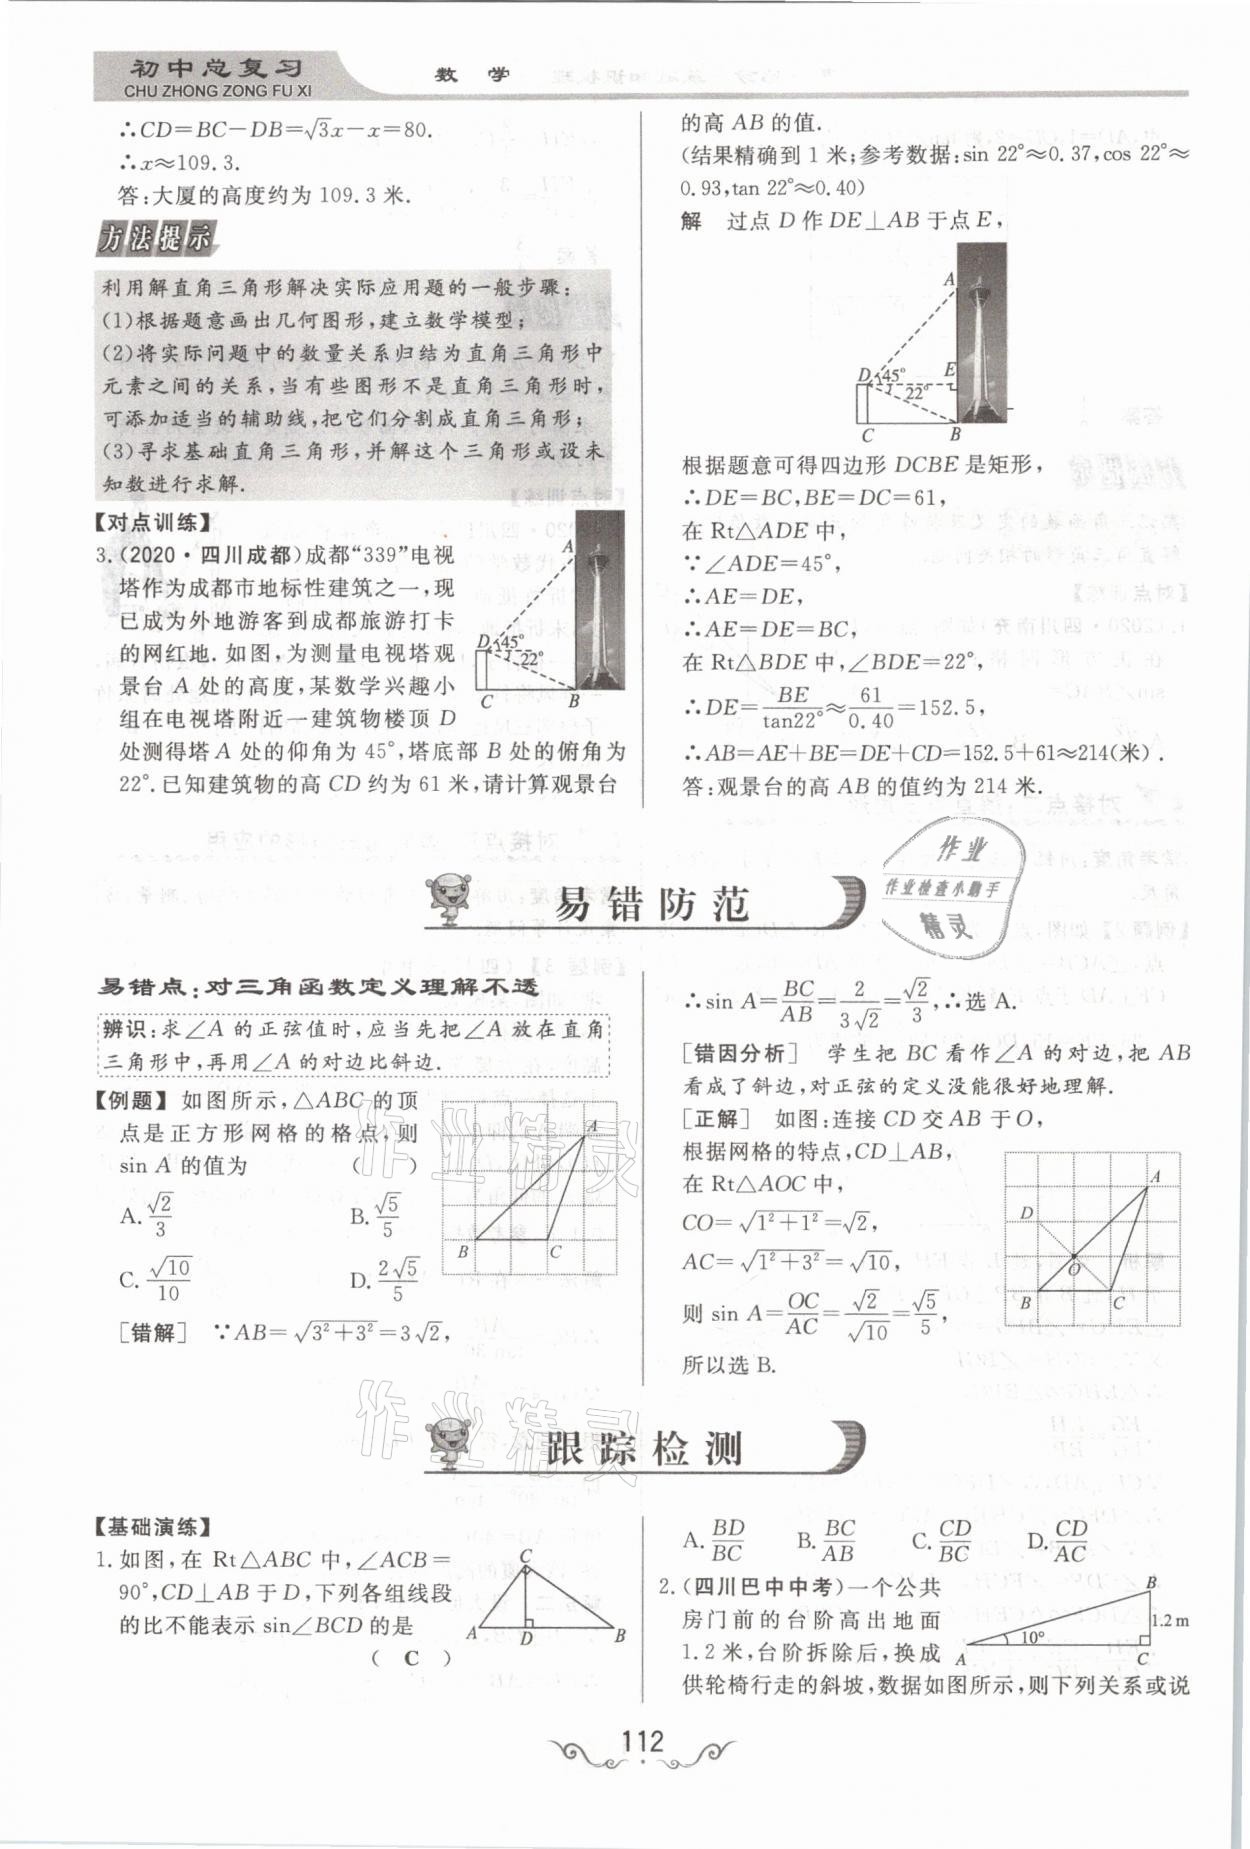 初中总复习
CHU ZHONG ZONG FU XI
数 学
∴CD=BC-DB=√3x-x=80.
∴x≈109.3.
答:大厦的高度约为 109.3 米.
方法提示
利用解直角三角形解决实际应用题的一般步骤:
(1)根据题意画出几何图形,建立数学模型;
(2)将实际问题中的数量关系归结为直角三角形中
元素之间的关系,当有些图形不是直角三角形时,
可添加适当的辅助线,把它们分割成直角三角形;
(3)寻求基础直角三角形,并解这个三角形或设未
知数进行求解.
【对点训练】
3.(2020·四川成都)成都“339”电视
塔作为成都市地标性建筑之一,现
已成为外地游客到成都旅游打卡
的网红地.如图,为测量电视塔观
景台 A 处的高度,某数学兴趣小
组在电视塔附近一建筑物楼顶 D
处测得塔 A 处的仰角为 45°,塔底部 B 处的俯角为
22°.已知建筑物的高 CD 约为 61 米,请计算观景台
A
D 45°
22°
C B
的高 AB 的值.
(结果精确到 1 米;参考数据:sin 22°≈0.37,cos 22°≈
0.93,tan 22°≈0.40)
解 过点 D 作 DE⊥AB 于点 E,
A
D 45° E
22°
C B
根据题意可得四边形 DCBE 是矩形,
∴DE=BC,BE=DC=61,
在 Rt△ADE 中,
∵∠ADE=45°,
∴AE=DE,
∴AE=DE=BC,
在 Rt△BDE 中,∠BDE=22°,
∴DE=BE/tan22°≈61/0.40=152.5,
∴AB=AE+BE=DE+CD=152.5+61≈214(米).
答:观景台的高 AB 的值约为 214 米.
作业
作业检查小助手
精灵
易错防范
易错点:对三角函数定义理解不透
辨识:求∠A 的正弦值时,应当先把∠A 放在直角
三角形中,再用∠A 的对边比斜边.
【例题】 如图所示,△ABC 的顶
点是正方形网格的格点,则
sin A 的值为 ( )
A.√2/3 B.√5/5
C.√10/10 D.2√5/5
A
B C
[错解] ∵AB=√3²+3²=3√2,
∴sin A=BC/AB=2/3√2=√2/3,∴选 A.
[错因分析] 学生把 BC 看作∠A 的对边,把 AB
看成了斜边,对正弦的定义没能很好地理解.
[正解] 如图:连接 CD 交 AB 于 O,
根据网格的特点,CD⊥AB,
在 Rt△AOC 中,
CO=√1²+1²=√2,
AC=√1²+3²=√10,
则 sin A=OC/AC=√2/√10=√5/5,
所以选 B.
A
D
O
B C
作业精灵
作业精灵
跟踪检测
【基础演练】
1.如图,在 Rt△ABC 中,∠ACB=
90°,CD⊥AB 于 D,下列各组线段
的比不能表示 sin∠BCD 的是
( C )
C
A D B
A.BD/BC B.BC/AB C.CD/BC D.CD/AC
2.(四川巴中中考)一个公共
房门前的台阶高出地面
1.2 米,台阶拆除后,换成
供轮椅行走的斜坡,数据如图所示,则下列关系或说
B
1.2 m
10°
A C
112